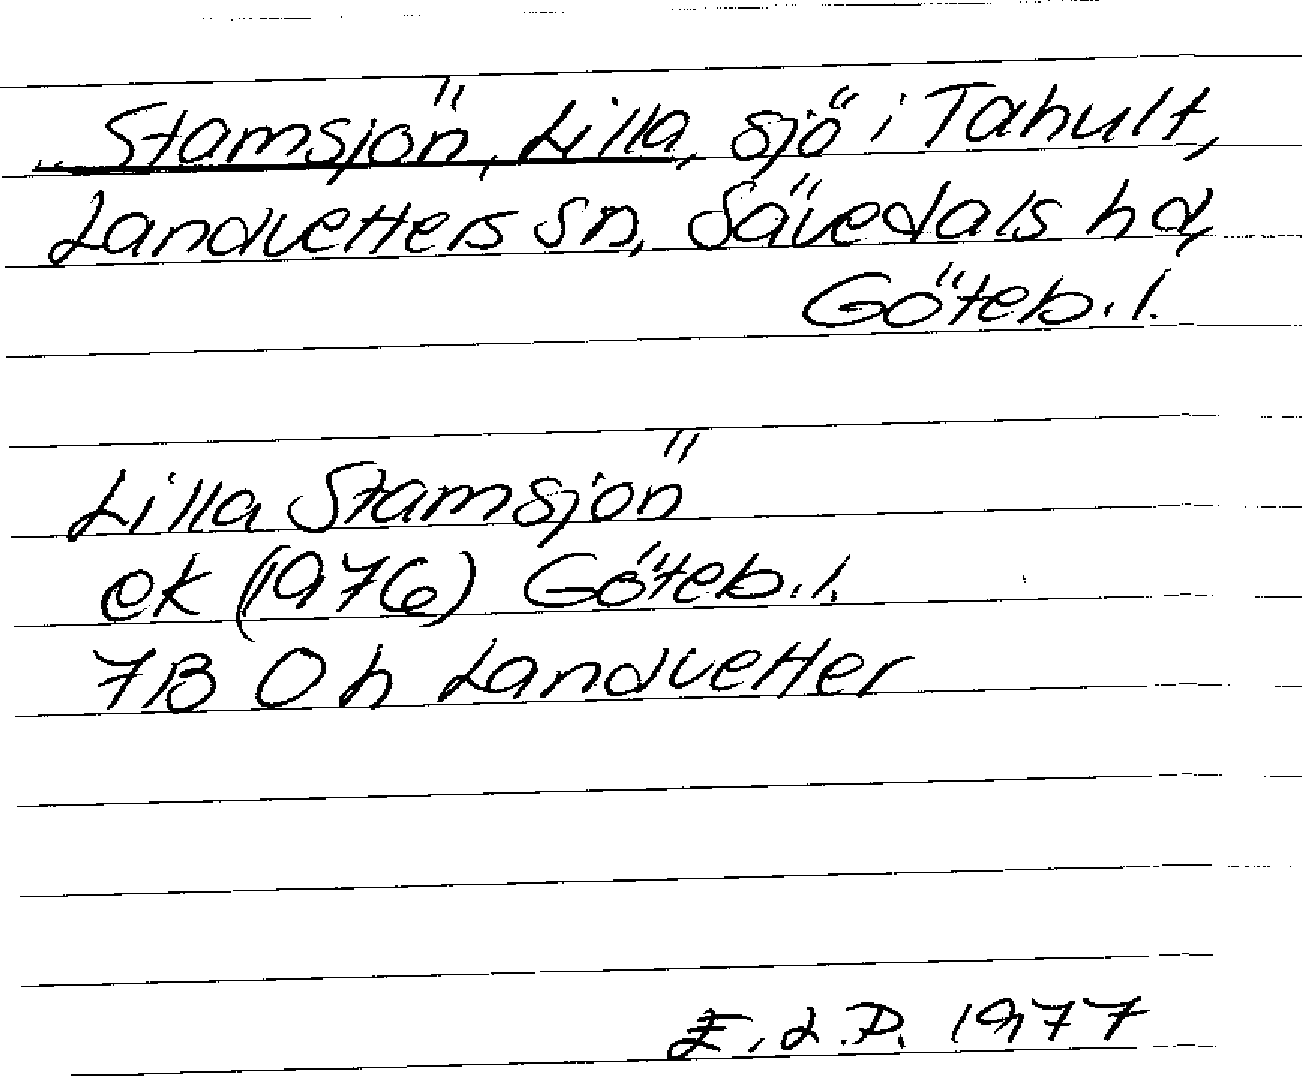 Stamsjön, Lilla, sjö i Tahult,
Landvetters sn, Sävedals hd,
Göteb. l.
Lilla Stamsjön
ek (1976) Göteb. l.
7B 0h Landvetter
E. L. P. 1977